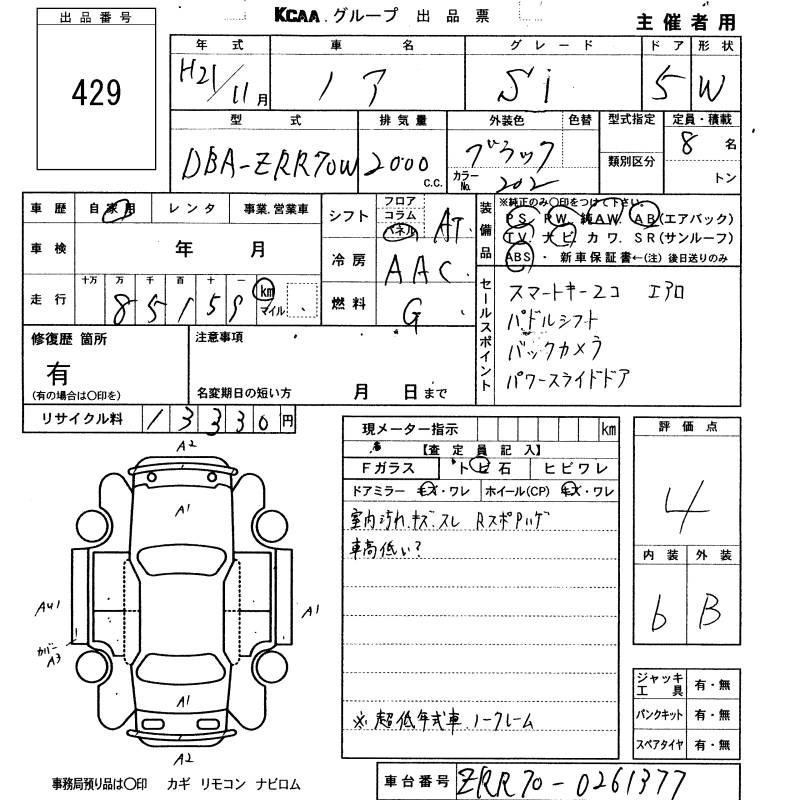 出品番号
429
KCAA グループ 出品票
主催者用
年式 車名 グレード ドア 形状
H21/11月 ノア Si 5 W
型式 排気量 外装色 色替 型式指定 定員・積載
DBA-ZRR70W 2000 c.c. ブラック 8名
カラーNo. 202 類別区分 トン
車歴 自家用 レンタ 事業.営業車
シフト フロア コラム パネル AT
装備品 ※純正のみ○印をつけて下さい。
PS. PW. 純AW. AB(エアバック)
TV. ナビ. カワ. SR(サンルーフ)
ABS ・ 新車保証書←(注) 後日送りのみ
車検 年 月
冷房 AAC
走行 十万 万 千 百 十 一
85159 km マイル
燃料 G
セールスポイント
スマートキー2コ エアロ
パドルシフト
バックカメラ
パワースライドドア
修復歴 箇所
有
(有の場合は○印を)
注意事項
名変期日の短い方 月 日まで
リサイクル料 13330円
現メーター指示 km
【査定員記入】
Fガラス トビ石 ヒビワレ
ドアミラー キズ・ワレ ホイール(CP) キズ・ワレ
室内汚れ.キズ.スレ RスポPハゲ
車高低い?
※超低年式車.ノークレーム
評価点
4
内装 外装
6 B
ジャッキ工具 有・無
パンクキット 有・無
スペアタイヤ 有・無
A2
A1
AU1
A1
カバーA3
A1
A2
事務局預り品は○印 カギ リモコン ナビロム
車台番号 ZRR70-0261377